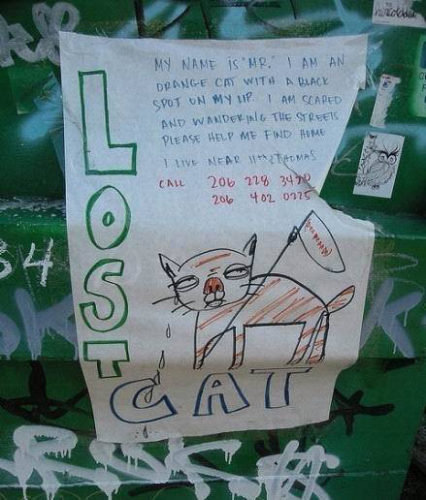 MY NAME IS "MR." I AM AN
ORANGE CAT WITH A BLACK
SPOT ON MY LIP. I AM SCARED
AND WANDERING THE STREETS
PLEASE HELP ME FIND HOME
I LIVE NEAR 11TH & THOMAS
CALL 206 228 3490
206 402 0225
LOST
CAT
34